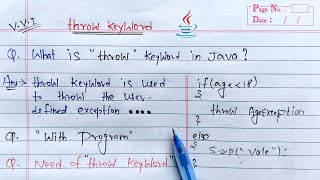 V.V.I
throw keyword
Java
Page No.
Date : / /
Q. What is "throw" keyword in Java?
Ans:- throw keyword is used
to throw the user-
defined exception ....
if(age<18)
{
throw AgeException
}
else
{
S.o.p("vote");
}
Q. "With Program"
Q. Need of "throw keyword"